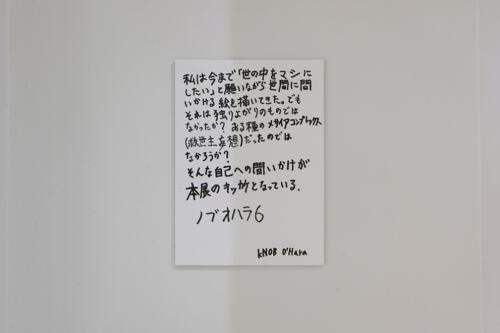 私は今まで「世の中をマシに
したい」と願いながら世間に問
いかける絵も描いてきた。でも
それは独りよがりのものでは
なかったか？ ある種のメサイアコンプレックス、
(救世主妄想)だったのでは
なかろうか？
そんな自己への問いかけが
本展のキッカケとなっている.
ノブオハラ6
kNOB O'Hara